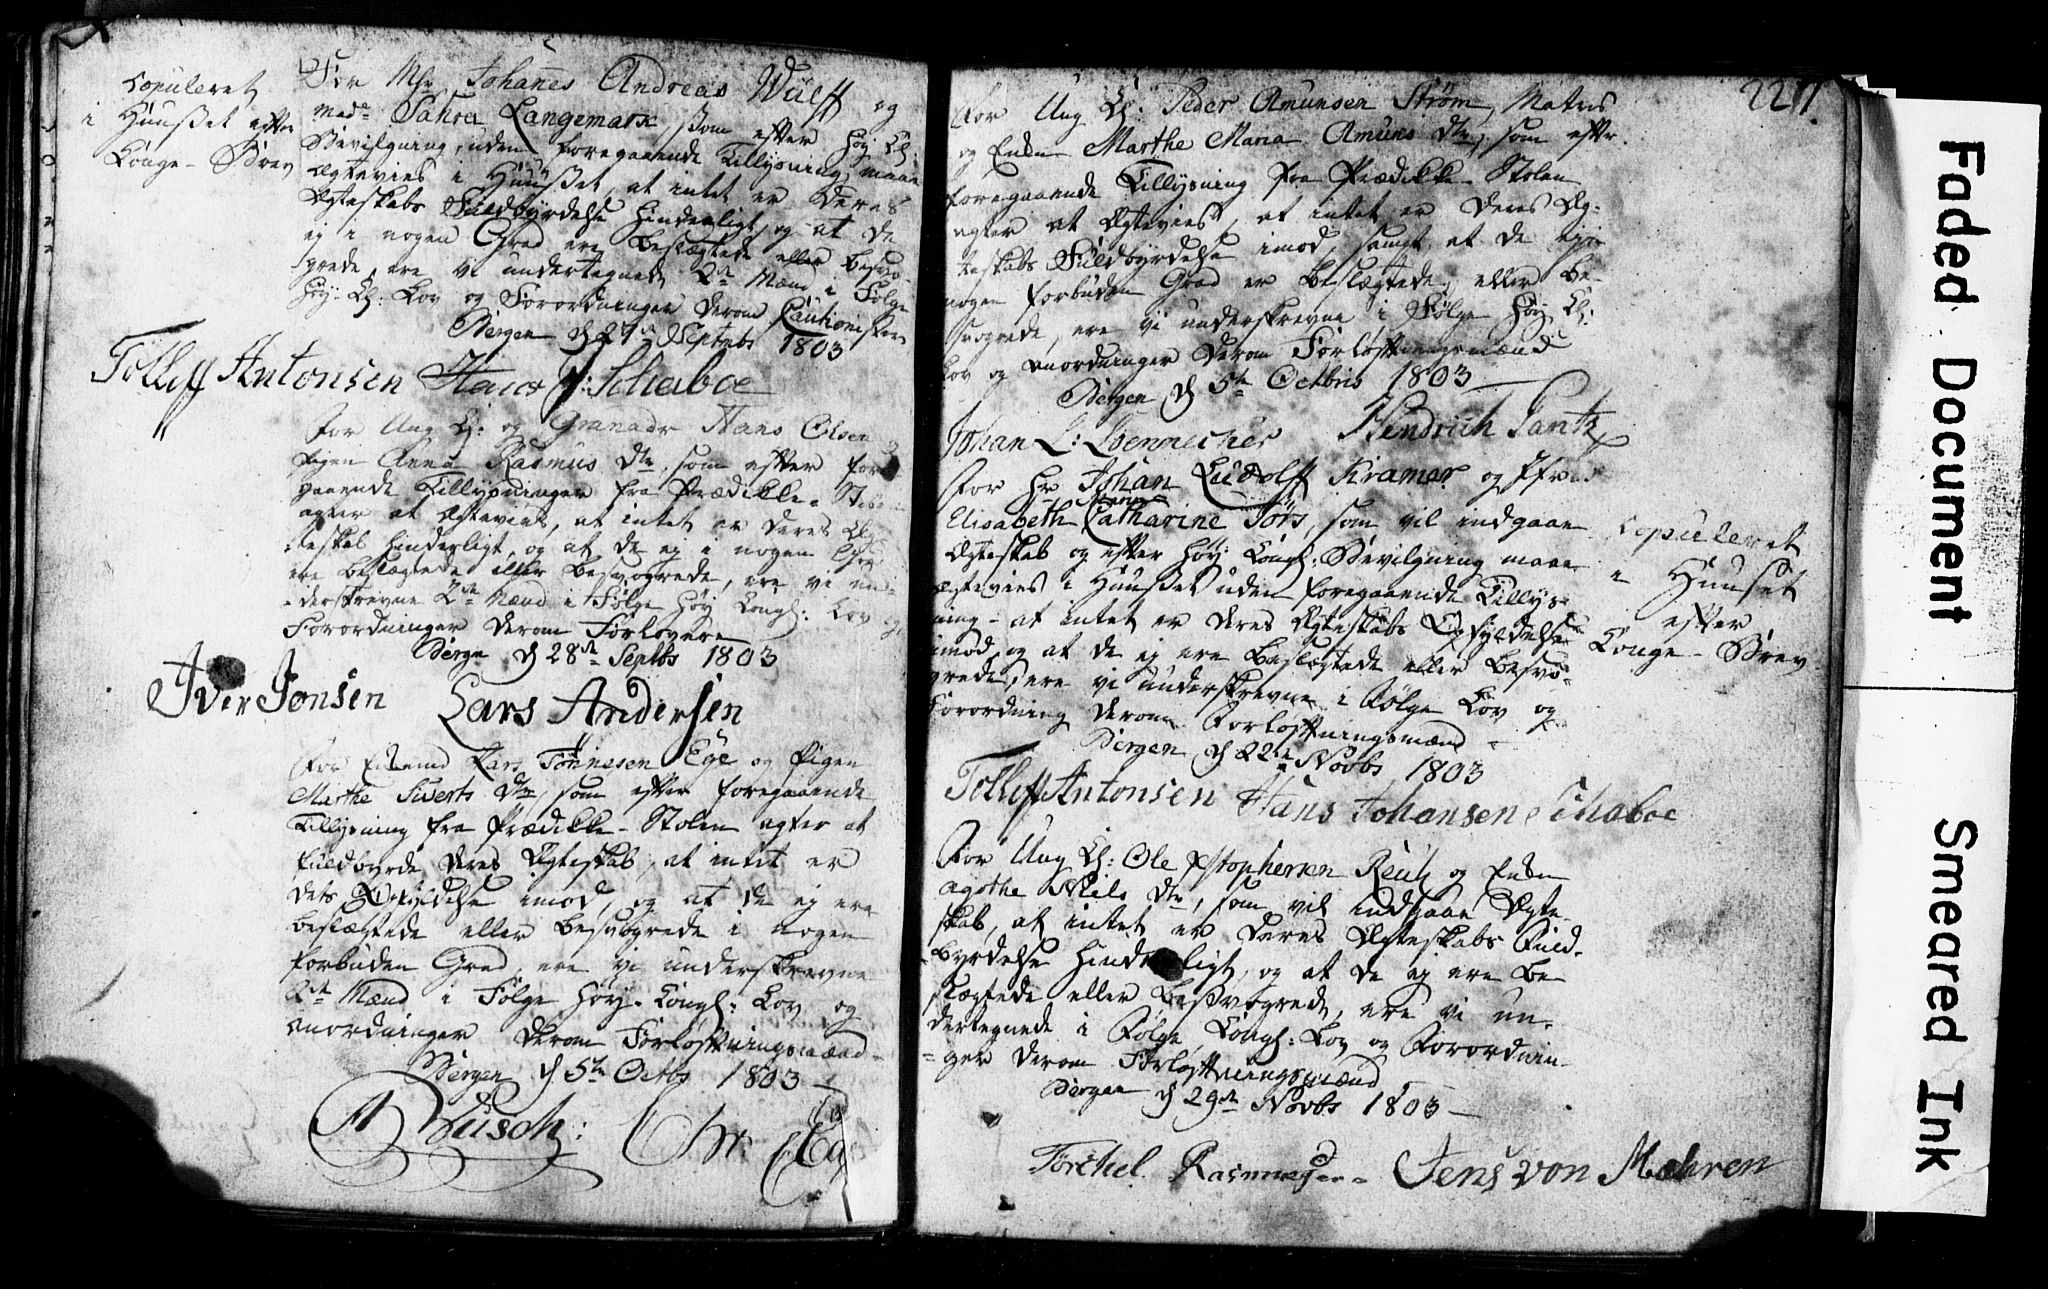 Copuleret
i Huuset efter
Konge-Brev
For Mr Johannes Andreas Wulff og
Mad. Sahra Langemarx, som efter høy Kl:
Bevilgning, uden foregaaende Tillysning maae
Ægtevies i Huuset, at intet er Deres
Ægteskabs Fuldbyrdelse hinderligt, og at De
ej i nogen Grad ere beslægtede eller besvo-
grede, ere vi undertegnede 2de Mænd i Følge
høy-Kl: Lov og Forordninger Derom Cautionister
Bergen d 27de Septbs 1803
Tolleff Antonsen Hans J: Schaboe
For Ung Kl: og Granadr Hans Olsen
Pigen Anna Rasmus Dtr, som efter fore
gaaende Tillysninger fra Prædikke-Stolen
agter at Ægtevies, at intet er Deres Æg
teskab hinderligt, og at de ej i nogen Grad
ere beslægtede eller besvogrede, ere vi un-
derskrevne 2de Mænd i Følge høy Kongl: Lov og
Forordninger Derom Forlovere
Bergen d 28de Septbs 1803
Iver Jonsen Lars Andersen
For Enkemd Lars Tønnesen Ege og Pigen
Marthe Siverts Dtr, som efter foregaaende
Tillysning fra Prædikke-Stolen agter at
fuldbyrde Deres Ægteskab, at intet er
dets Opfyldelse imod, og at De ej ere
beslægtede eller besvogrede i nogen
forbuden Grad, ere vi underskrevne
2de Mænd i Følge høy-Kongl: Lov og
Anordninger Derom Forløftningsmænd-
Bergen d 5te Octbs 1803-
A Busch: Chr:
227.
For Ung Kl: Peder Amunsen Strøm, Matros
og Enken Marthe Maria Amuns Dtr, som efter
foregaaende Tillysning fra Prædikke-Stolen
agter at Ægtevies, at intet er Deres Æg-
teskabs Fuldbyrdelse imod, samt at De ej i
nogen forbuden Grad er beslægtede, eller be-
svogrede, ere vi underskrevne i Følge høy Kl:
Lov og Anordninger Derom Forløftningsmænd
Bergen d 5te Octbris 1803
Johan L: Hendrich Pantz
For Hr Johan Ludolff Kramer og Jfr.
Elisabeth Catharine Jørs, som vil indgaae
Ægteskab og efter høy: Kongl: Bevilgning maae
Ægtevies i Huuset uden foregaaende Tillys-
ning - at intet er Deres Ægteskabs Opfyldelse
imod, og at de ej ere beslægtede eller besvo-
grede, ere vi underskrevne i Følge Lov og
Forordning Derom Forløftningsmænd -
Bergen d 22de Novbs 1803
Copuleret
i Huuset
efter
Konge-Brev
Tolleff Antonsen Hans Johansen Schaboe
For Ung Kl: Ole Xstophersen Reutz og Enken
Agothe Niels Dtr, som vil indgaae Ægte-
skab, at intet er Deres Ægteskabs Fuld-
byrdelse hinderligt, og at de ej ere be-
slægtede eller besvogrede, ere vi un-
dertegnede i Følge Kongl: Lov og Forordnin-
ger Derom Forløftningsmænd
Bergen d 29de Novbs 1803-
Torchel Rasmusen Jens von Mehren
Faded Document
Smeared Ink